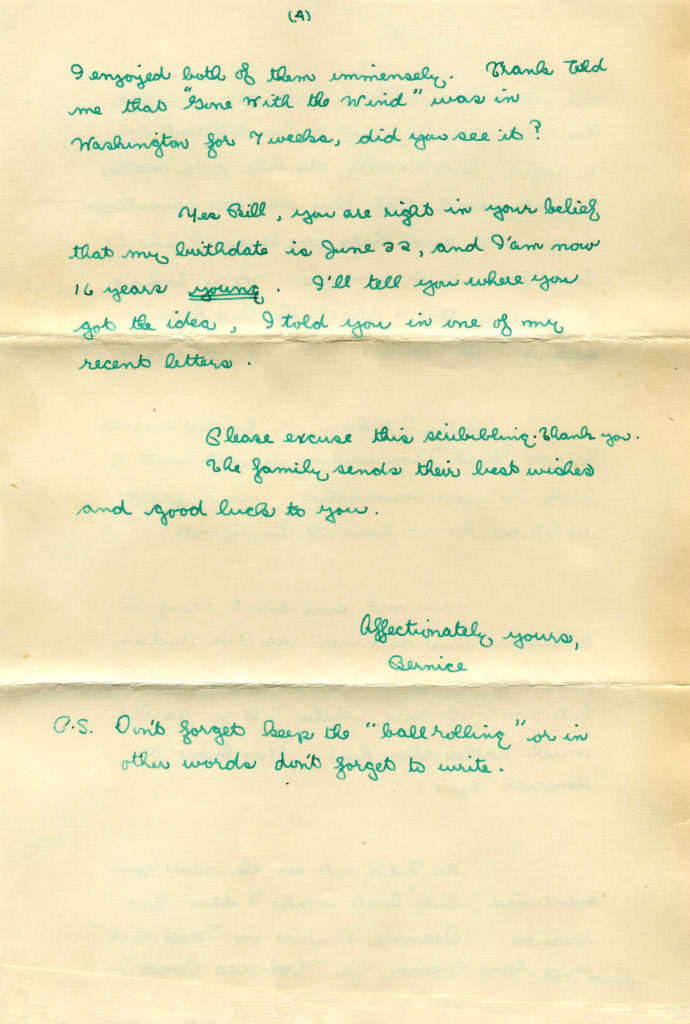 (4)
I enjoyed both of them immensely. Frank told
me that "Gone With the Wind" was in
Washington for 7 weeks, did you see it?
Yes Bill, you are right in your belief
that my birthdate is June 22, and I'am now
16 years young. I'll tell you where you
got the idea, I told you in one of my
recent letters.
Please excuse this scribbling. Thank you.
The family sends their best wishes
and good luck to you.
Affectionately yours,
Bernice
P.S. Don't forget keep the "ball rolling" or in
other words don't forget to write.